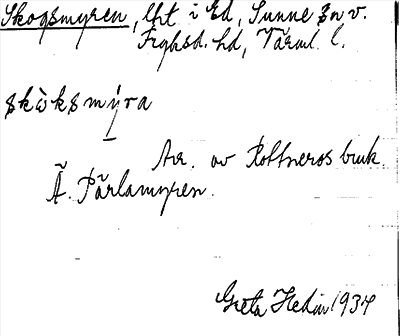 Skogsmyren, lht i Ed, Sunne sn v.
Fryksd. hd, Värml. l.
skòksmýra
Av. av Rottneros bruk.
Ä. Pärlamyren.
Greta Hedin 1934